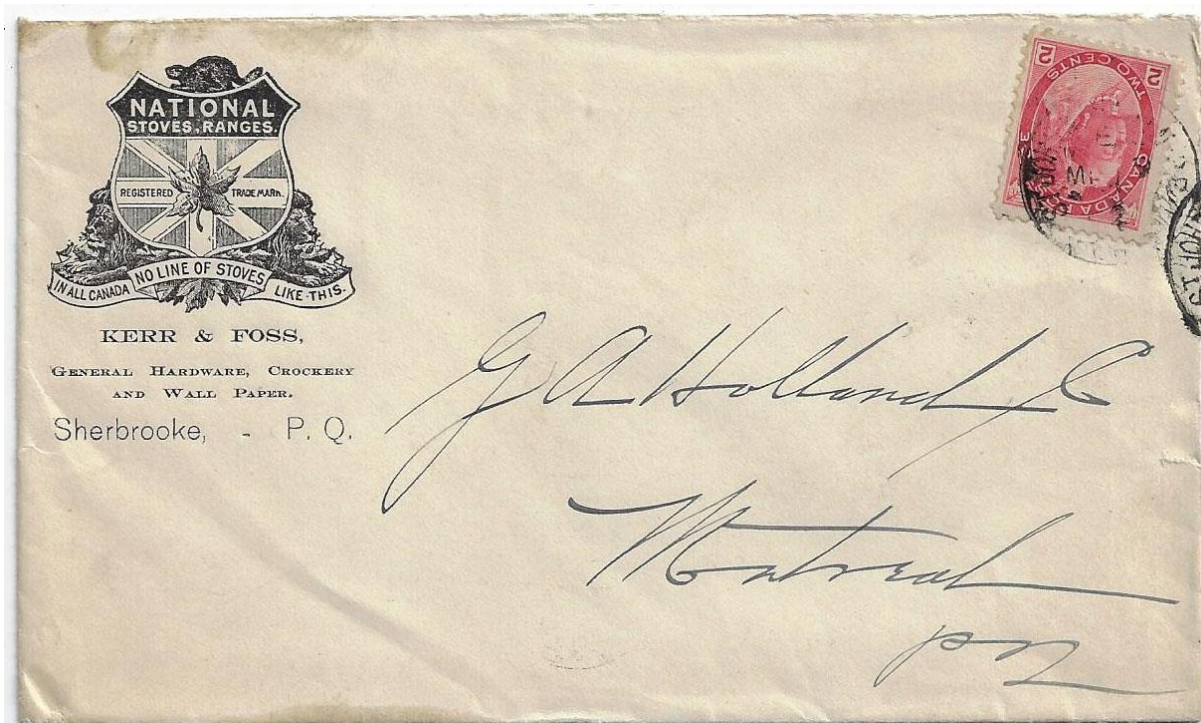 NATIONAL
STOVES, RANGES.
REGISTERED TRADE MARK.
IN ALL CANADA NO LINE OF STOVES LIKE THIS.
KERR & FOSS,
GENERAL HARDWARE, CROCKERY
AND WALL PAPER.
Sherbrooke, - P. Q.
2 TWO CENTS 2
CANADA
G A Holland
Montreal
PQ